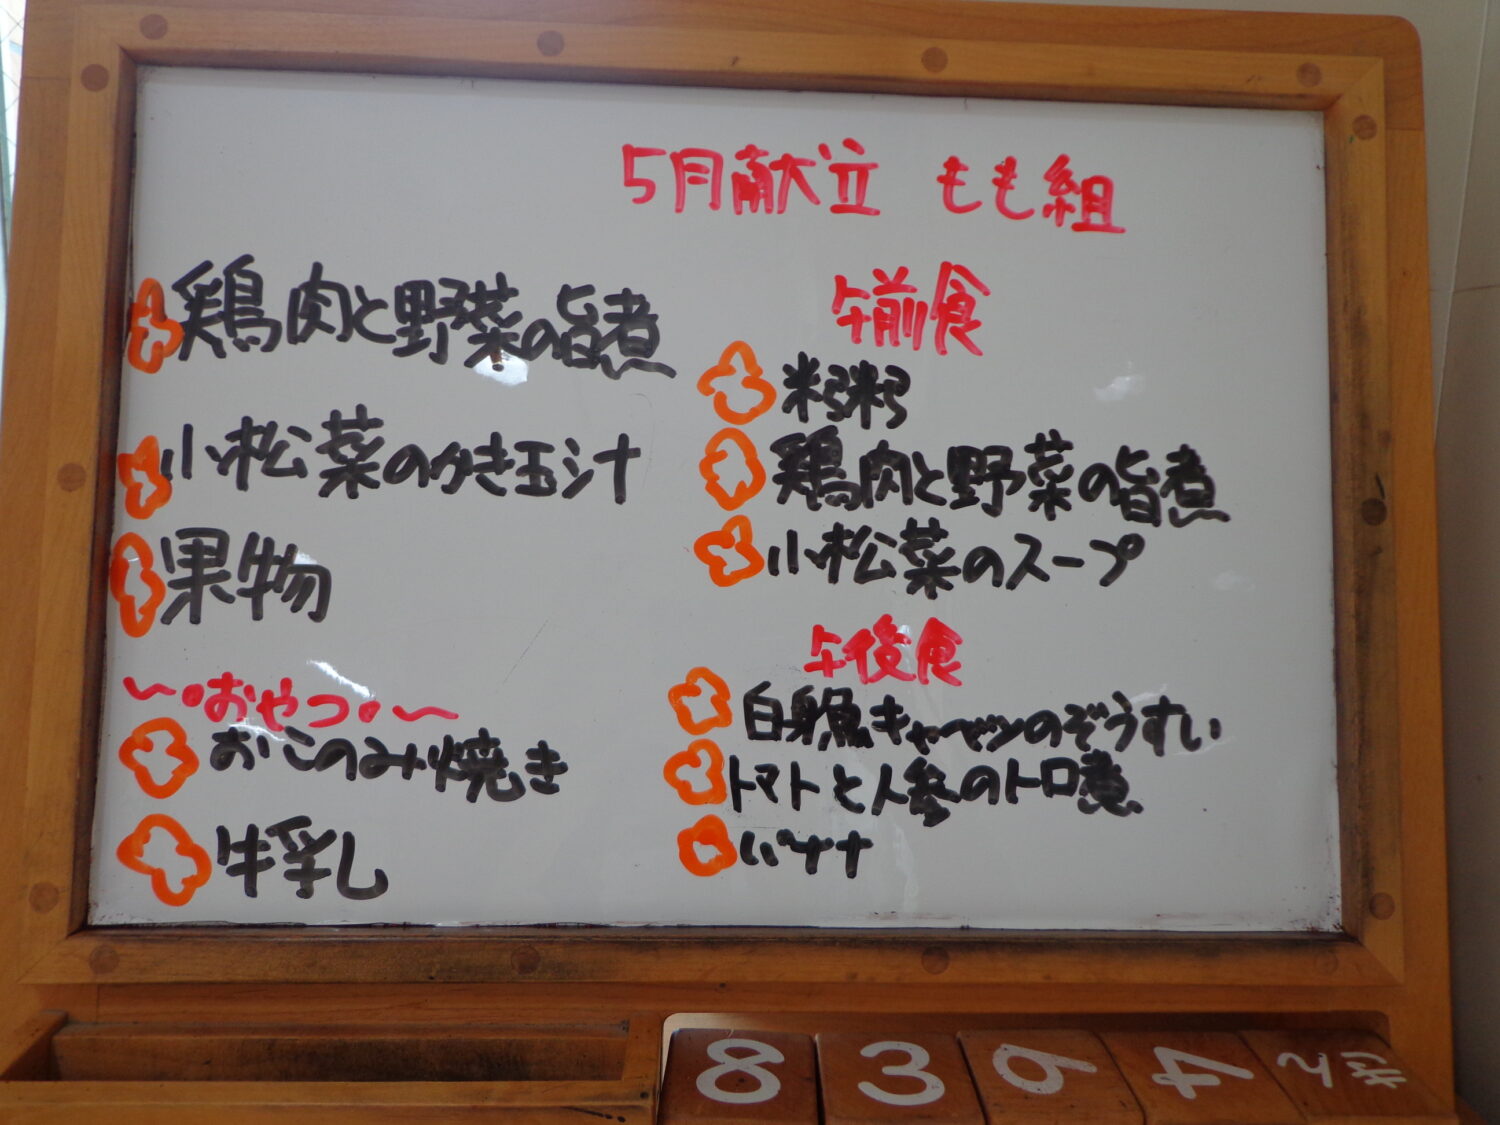 5月献立 もも組
鶏肉と野菜の旨煮
小松菜のかき玉汁
果物
〜・おやつ・〜
おこのみ焼き
牛乳
午前食
粥
鶏肉と野菜の旨煮
小松菜のスープ
午後食
白身魚キャベツのぞうすい
トマトと人参のトロ煮
バナナ
8 3 6 4